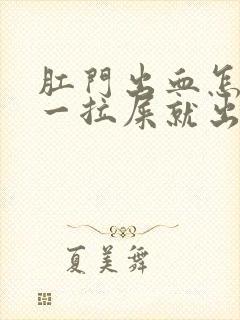 肛門出血怎
一拉屎就出
夏美舞